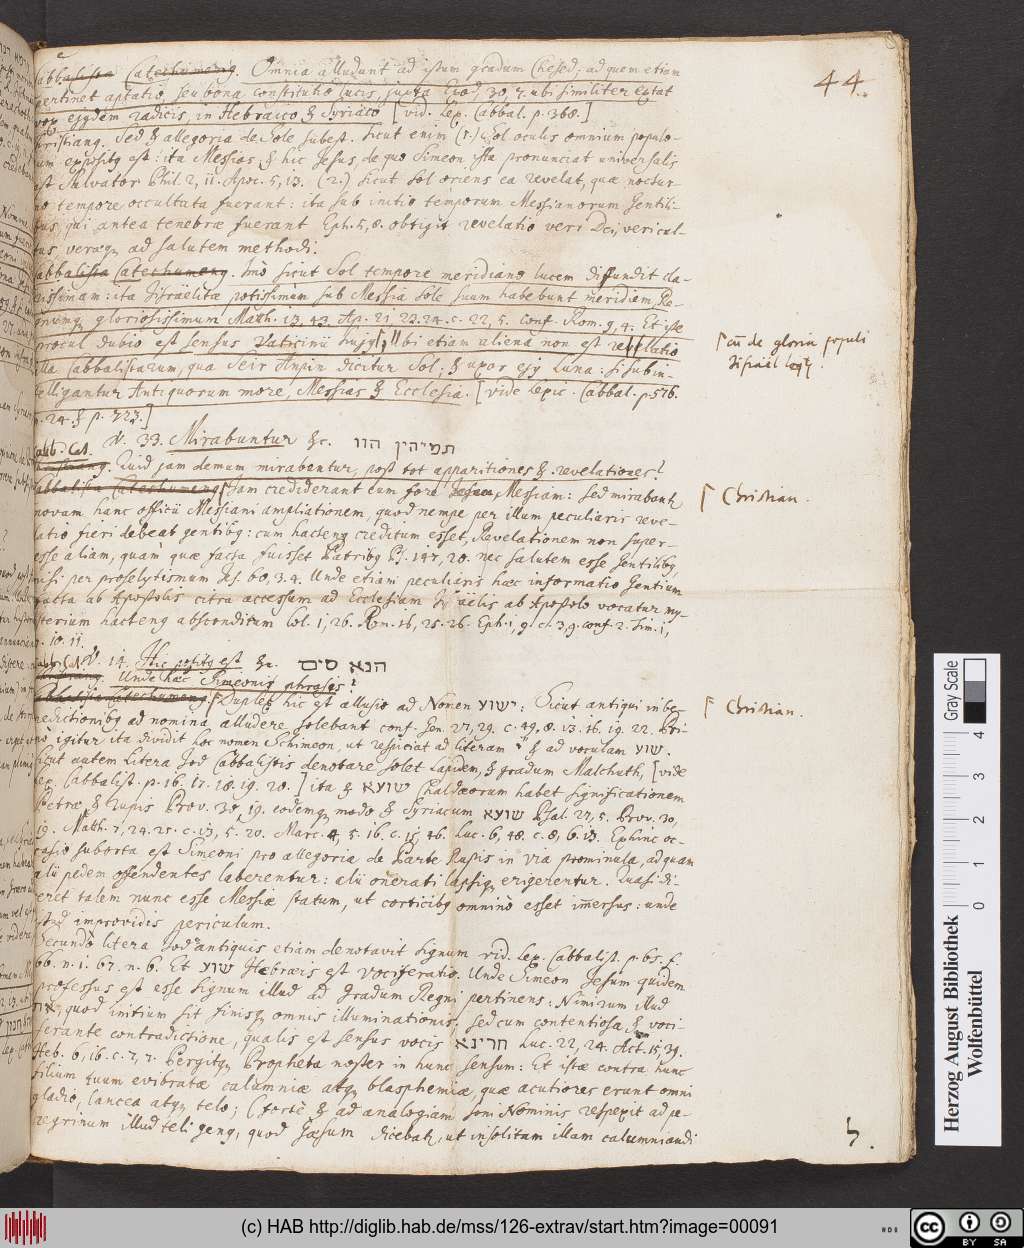 44.
Cabbalista Catechumeng. Omnia alludunt ad istum gradum Chesed; ad quem etiam
pertinet aptatio, seu bona constitutio lucis, juxta Exod. 30, 7. ubi similiter extat
vox ejusdem radicis, in Hebraico & Syriaco [vid. Lex. Cabbal. p. 368.]
Christiang. Sed & allegoria de Sole subest. Sicut enim (1.) Sol oculis omnium populo-
rum expositg est: ita Messias, & hic Jesus, de quo Simeon ista pronunciat universalis
est Salvator Phil. 2, 11. Apoc. 5, 13. (2.) Sicut Sol oriens ea revelat, quæ noctur-
no tempore occultata fuerant: ita sub initio temporum Messianorum Gentili-
bus, qui antea tenebræ fuerant Eph. 5, 8. obtigit revelatio veri Dei, veri cul-
tus veræq ad salutem methodi.
Cabbalista Catechumeng. Imò sicut Sol tempore meridiano lucem diffundit cla-
rissimam: ita Jisraëlitæ potissimùm sub Messia Sole suum habebunt meridiem, Re-
gnumq gloriosissimum Matth. 13, 43. Ap. 21 22. 24. c. 22, 5. conf. Rom. 9, 4. Et iste
procul dubio est sensus Vaticinii hujg, ubi etiam aliena non est revelatio
illa Cabbalistarum, qua Seir Anpin dicitur Sol; & uxor ejg Luna: si subin-
telligantur Antiquorum more, Messias & Ecclesia. [vide Lexic. Cabbal. p. 576.
n. 24. & p. 723.]
⌈ cũ de gloria populi
Jisraël
Cabb. Cat. V. 33. Mirabuntur &c. תמיהין הוו
Christiang. Quid jam demum mirabantur, post tot apparitiones & revelationes?
Cabbalista Catechumeng ⌈ Jam crediderant eum fore Messiam: sed mirabantr
⌈ Christian.
novam hanc officii Messiani ampliationem, quod nempe per illum peculiaris reve-
latio fieri debeat gentibg: cum hacteng creditum esset, Revelationem non super-
esse aliam, quàm quæ facta fuisset Patribg Ps. 147, 20. nec salutem esse Gentilibg,
nisi per proselytismum Jes. 60, 3. 4. Unde etiam peculiaris hæc informatio Gentium
facta ab Apostolis citra accessum ad Ecclesiam Jisraëlis ab Apostolo vocatur my-
sterium hacteng absconditum Col. 1, 26. Rom. 16, 25. 26. Eph. 1, 9. c. 3, 9. conf. 2. Tim. 1,
9. 10. 11.
Cabb. Cat. V. 34. Hic positg est &c. הנא סים
Christiang. Unde hæc Simeonis phrasis?
Cabbalista Catechumeng ⌈ Duplex hic est allusio ad Nomen ישוע: Sicut antiqui in be-
⌈ Christian.
nedictionibg ad nomina alludere solebant conf. Gen. 27, 29. c. 49, 8. 13. 16. 19. 22. Pri-
mò igitur ita dividit hoc nomen Schimeon, ut respiciat ad literam י & ad voculam שוע.
Sicut autem litera Jod Cabbalistis denotare solet Lapidem, & gradum Malchuth, [vide
Lex. Cabbalist. p. 16. 17. 18. 19. 20.] ita & שועא Chaldæorum habet significationem
Petræ, & Rupis Prov. 30, 19. eodemq modo & Syriacum שועא Psal. 27, 5. Prov. 30,
19. Matth. 7, 24. 25. c. 13, 5. 20. Marc. 4, 5. 16. c. 15, 46. Luc. 6, 48. c. 8, 6. 13. Exhinc oc-
casio suborta est Simeoni pro allegoria de Parte Rupis in via prominula, ad quam
alii pedem offendentes laberentur: alii onerati lapsiq erigerentur. Quasi di-
ceret talem nunc esse Messiæ statum, ut corticibg omninò esset immersus: unde
istud improvidis periculum.
Secundò litera Jod antiquis etiam denotavit signum vid. Lex. Cabbalist. p. 65. f.
66. n. 1. 67. n. 6. Et שוע Hebræis est vociferatio. Unde Simeon Jesum quidem
professus est esse signum illud ad Gradum Regni pertinens: Nimirum illud
את, quod initium sit finisq omnis illuminationis; sed cum contentiosa, & voci-
ferante contradictione, qualis est sensus vocis חרינא Luc. 22, 24. Act. 15, 39.
Heb. 6, 16. c. 7, 7. Pergitq Propheta noster in hunc sensum: Et istæ contra hunc
filium tuum evibratæ calumniæ atq blasphemiæ, quæ acutiores erunt omni
gladio, lancea atq telo; (fortè & ad analogiam soni Nominis respexit ad pe-
regrinum illud teli geng, quod Gæsum dicebatr, ut insolitam illam calumniandi
Herzog August Bibliothek
Wolfenbüttel
Gray Scale
0 1 2 3 4
(c) HAB http://diglib.hab.de/mss/126-extrav/start.htm?image=00091
cc BY SA